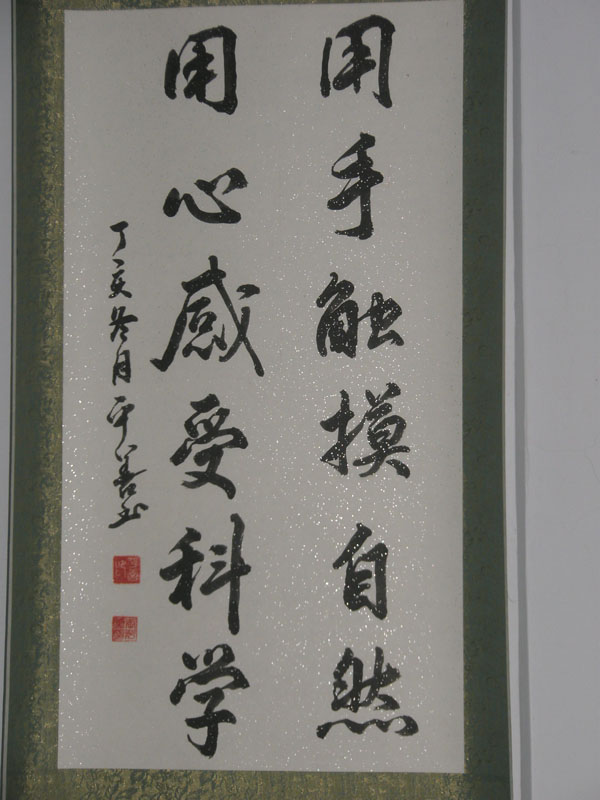 用手触摸自然
用心感受科学
丁亥冬月平善书